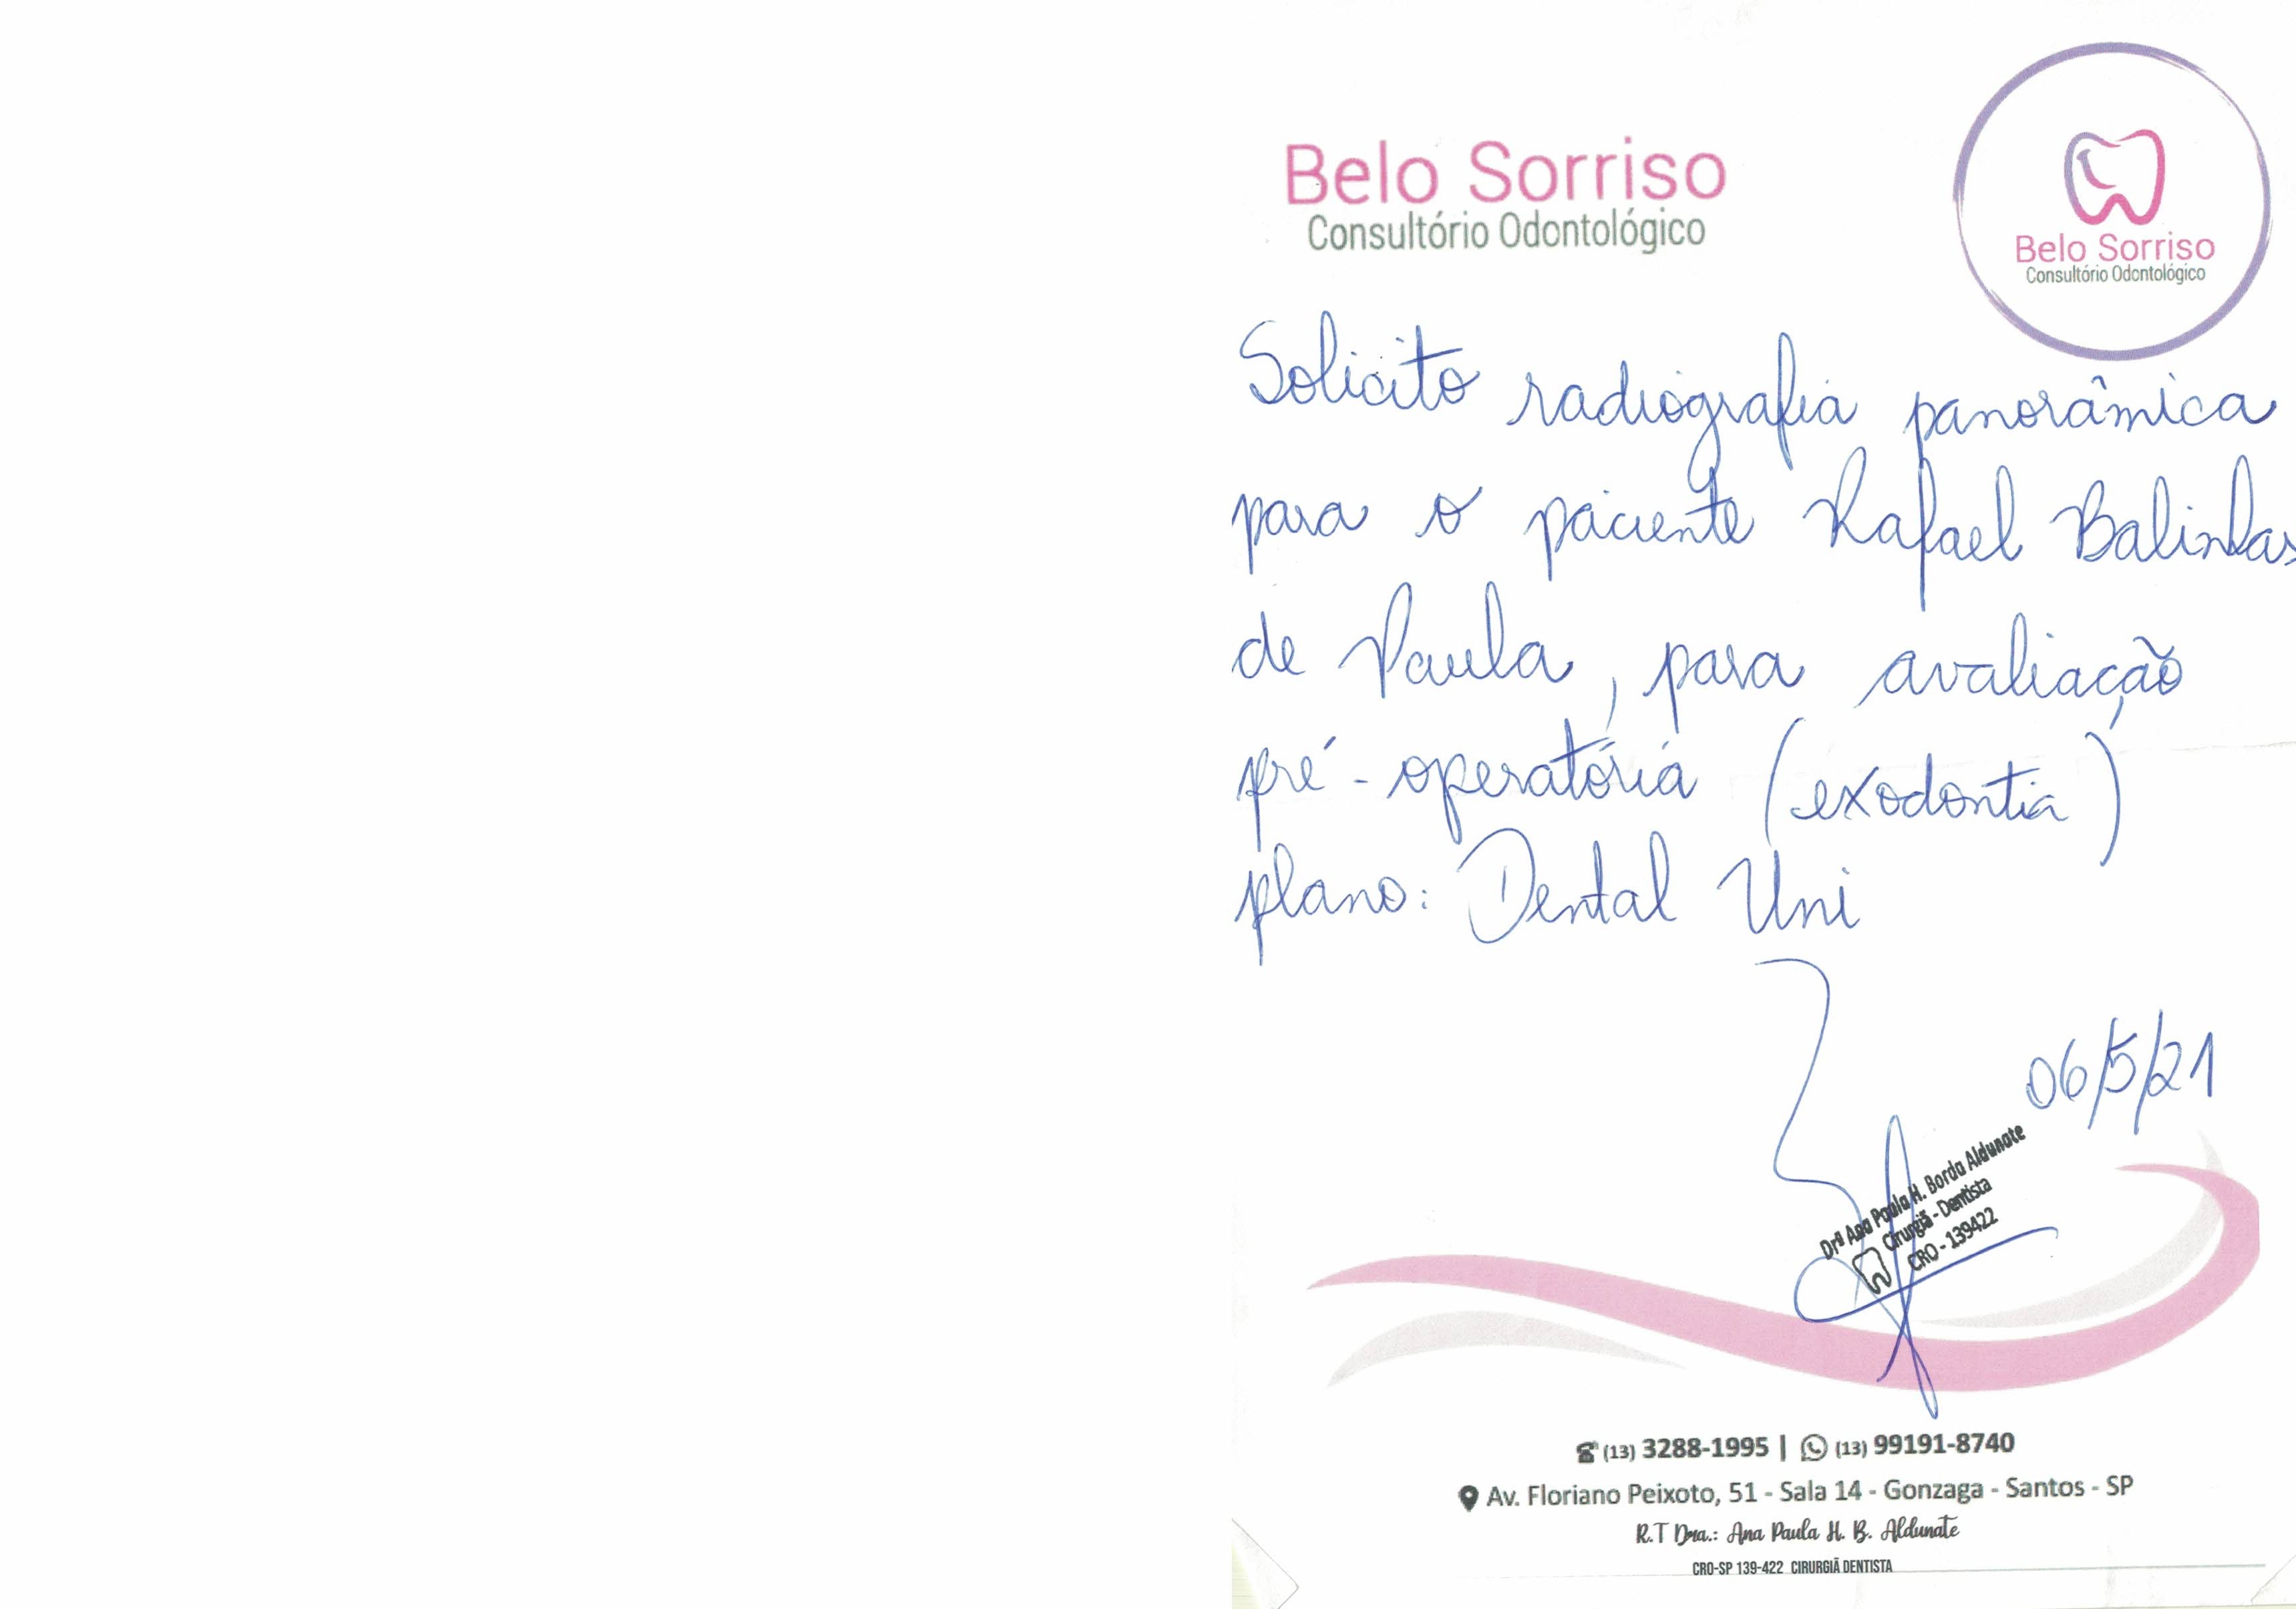 Belo Sorriso
Consultório Odontológico
Belo Sorriso
Consultório Odontológico
Solicito radiografia panorâmica
para o paciente Rafael Balinhas
de Paula, para avaliação
pré-operatória (exodontia)
plano: Dental Uni
06/5/21
Drª Ana Paula H. Borda Aldunate
Cirurgiã - Dentista
CRO - 139422
(13) 3288-1995 | (13) 99191-8740
Av. Floriano Peixoto, 51 - Sala 14 - Gonzaga - Santos - SP
R.T Dra.: Ana Paula H. B. Aldunate
CRO-SP 139-422 CIRURGIÃ DENTISTA